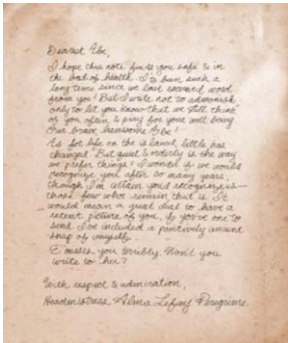 Dearest Abe,
I hope this note finds you safe & in
the best of health. It's been such a
long time since we last received word
from you! But I write not to admonish,
only to let you know that we still think
of you often & pray for your well being.
Our brave, handsome Abe!
As for life on the island, little has
changed. But quiet & orderly is the way
we prefer things! I wonder if we would
recognize you after so many years,
though I'm certain you'd recognize us—
those few who remain, that is. It
would mean a great deal to have a
recent picture of you, if you've one to
send. I've included a positively ancient
snap of myself.
E misses you terribly. Won't you
write to her?
With respect & admiration,
Headmistress Alma LeFay Peregrine